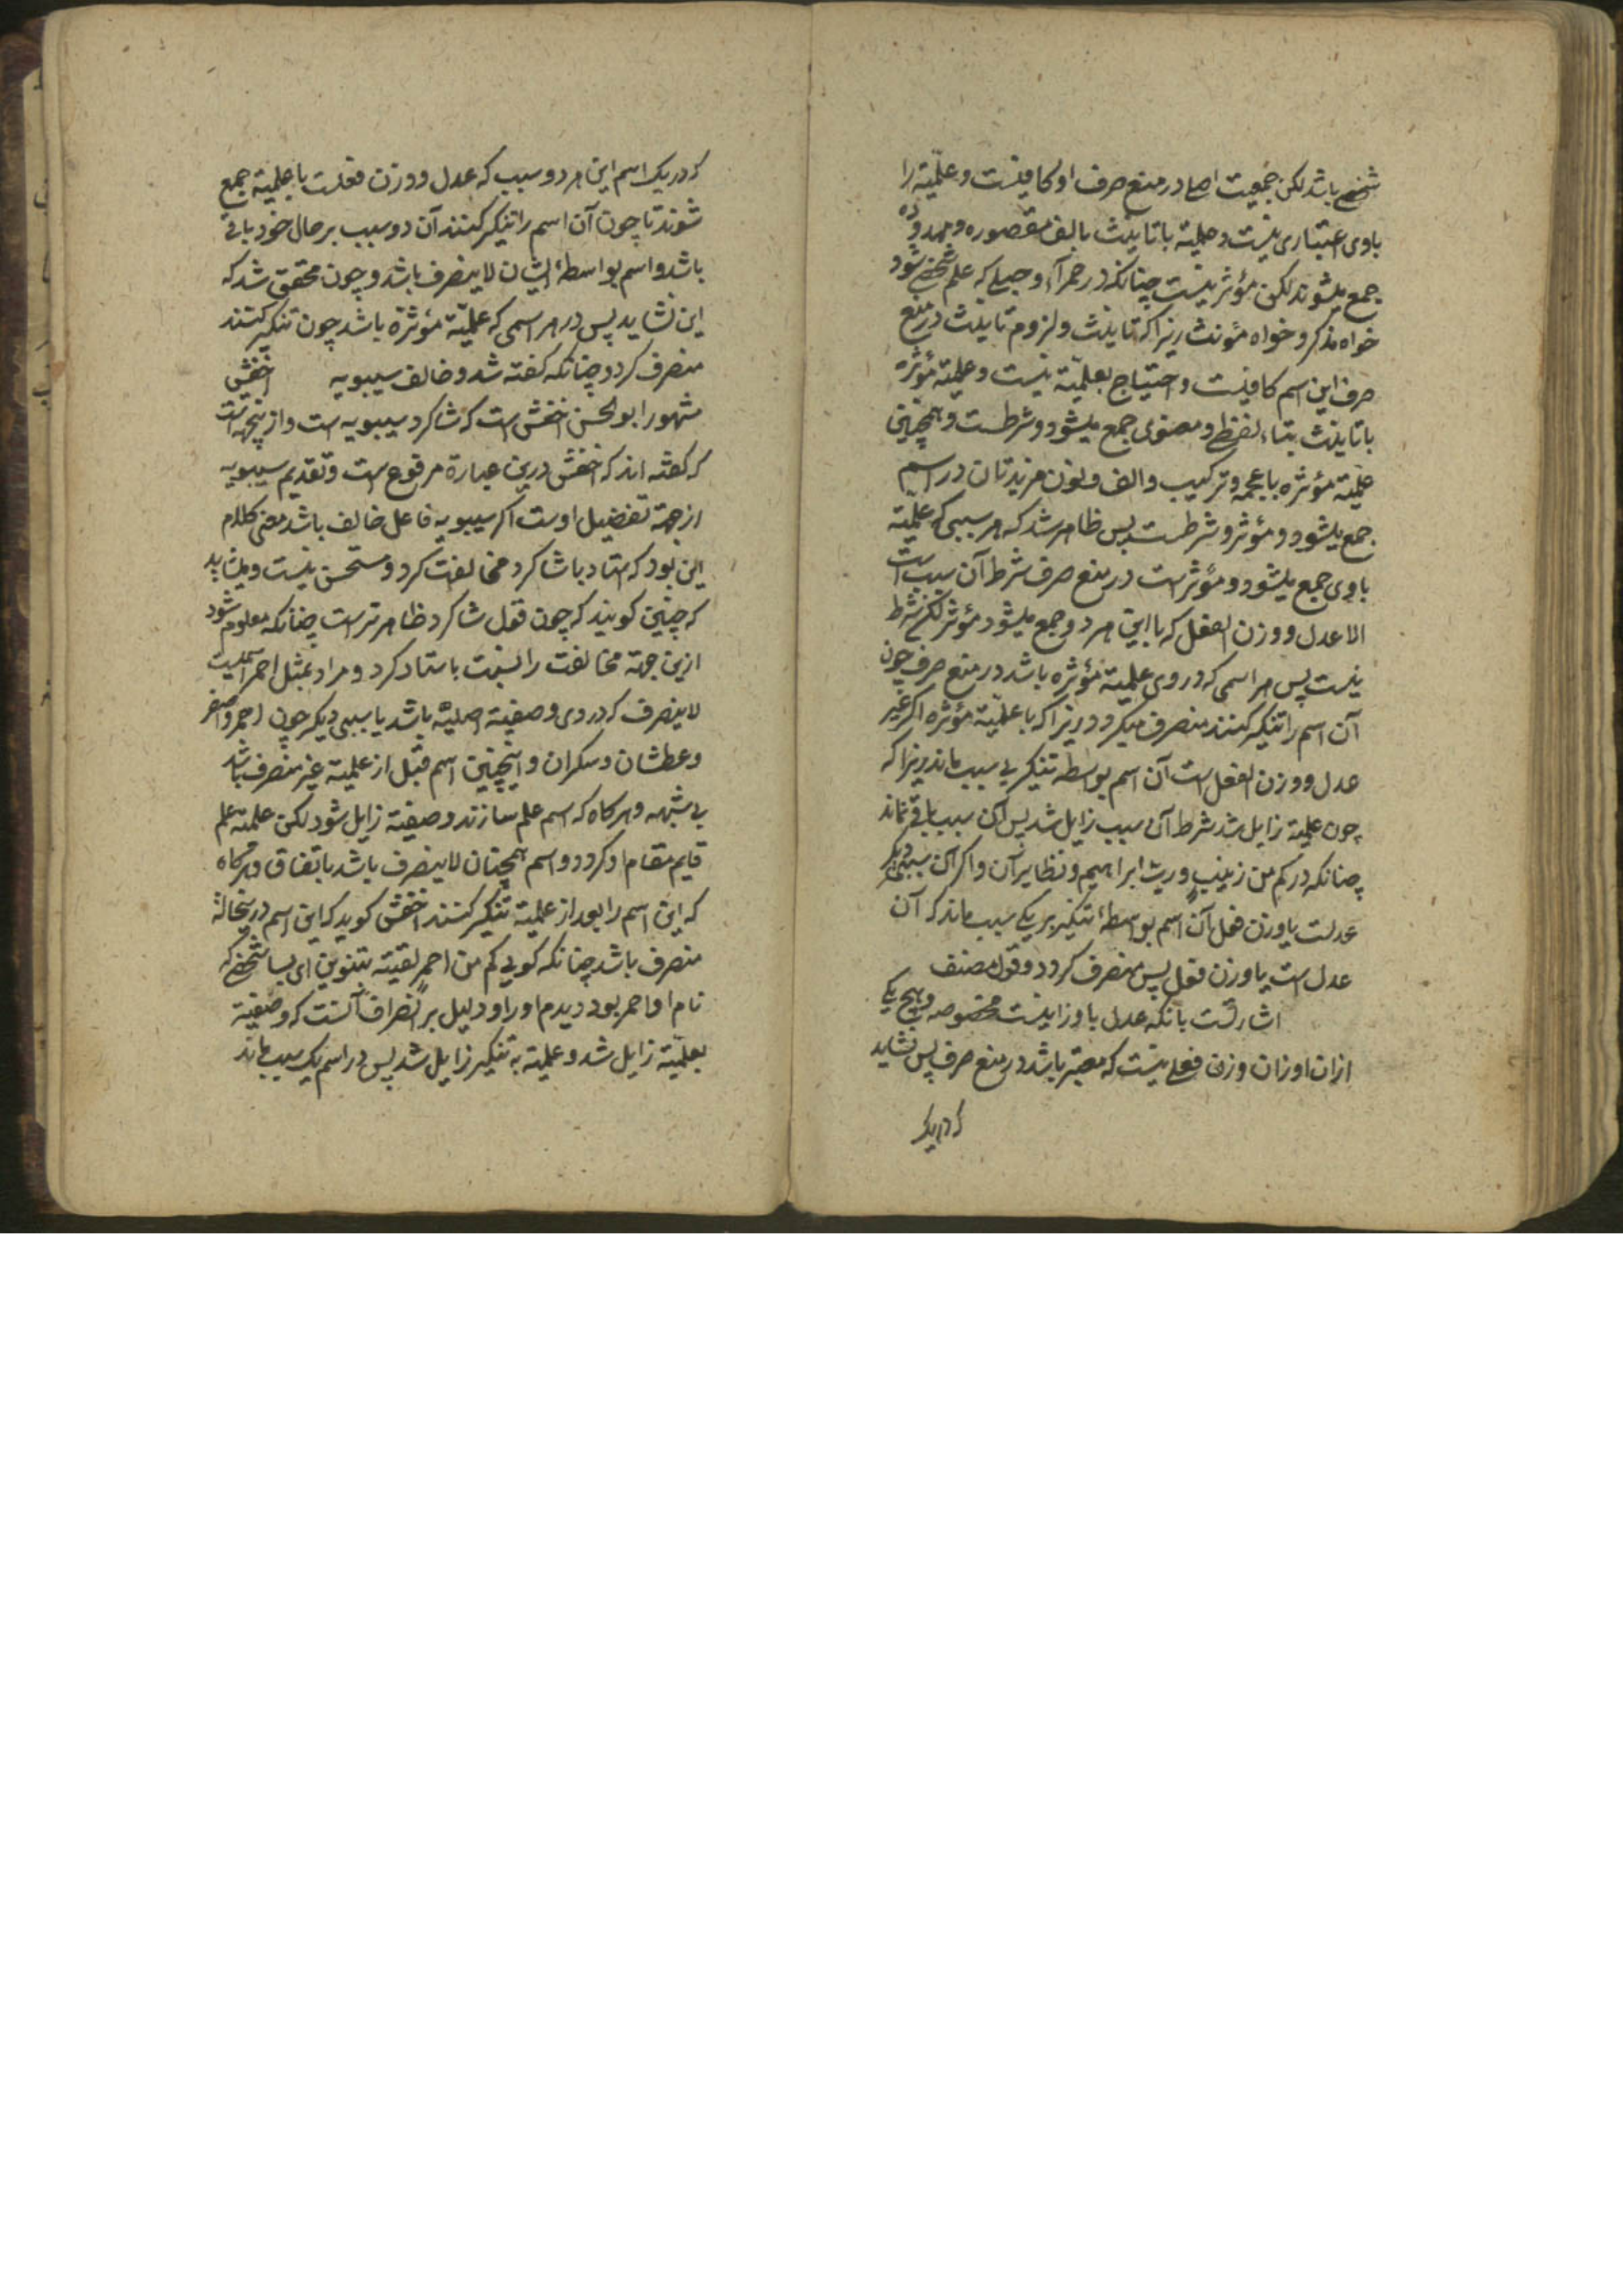 شخصی باشد لکن جمعیت اصلی در منع صرف او کافیست و علمیّة را
باوی اعتباری نیست و علمیة با تانیث بالف مقصوره و ممدوده
جمع میشوند لکن مؤثر نیست چنانکه در حمرآء و حبلی که علم شخصی شود
خواه مذکر و خواه مؤنث زیرا که تانیث و لزوم تانیث در منع
صرف این اسم کافیست و احتیاج بعلمیّة نیست و علمیة مؤثره
با تانیث بتاء لفظی و معنوی جمع میشود و شرطست و همچنین
علمیّة مؤثره با عجمه و ترکیب و الف و نون مزیدتان در اسم
جمع میشود و مؤثر و شرطست پس ظاهر شد که هر سببی که علمیّة
باوی جمع میشود و مؤثر است در منع صرف شرط آن سبب است
الا عدل و وزن الفعل که با این هر دو جمع میشود مؤثر لکن شرط
نیست پس هر اسمی که در وی علمیة مؤثره باشد در منع صرف چون
آن اسم را تنکیر کنند منصرف میگردد زیرا که با علمیّة مؤثره اگر غیر
عدل و وزن الفعل است آن اسم بواسطه تنکیر بی سبب ماند زیرا که
چون علمیة زایل شد شرط آن سبب زایل شد پس آن سبب باقی نماند
چنانکه در کم من زینبٍ و ربّ ابراهیم و نظایر آن و اگر آن سببی دیگر
عدلست یا وزن فعل آن اسم بواسطۀ تنکیر بر یک سبب ماند که آن
عدل است یا وزن فعل پس منصرف گردد و قول مصنف
اشارتست بانکه عدل با وزانیست مخصوصه و هیچ یک
ازان اوزان وزن فعلی نیست که معتبر باشد در منع صرف پس نشاید
که در یک
که در یک اسم این هر دو سبب که عدل و وزن فعلست با علمیّة جمع
شوند تا چون آن اسم را تنکیر کنند آن دو سبب بر حال خود باقی
باشد و اسم بواسطۀ ایشان لاینصرف باشد و چون محقق شد که
این نشاید پس در هر اسمی که علمیّة مؤثرة باشد چون تنکیر کنند
منصرف گردد چنانکه گفته شد و خالف سیبویه اخفش
مشهور ابوالحسن اخفش است که شاگرد سیبویه است و ازینجهت است
که گفته اند که اخفش درین عبارة مرفوع است و تقدیم سیبویه
از جهة تفضیل اوست اگر سیبویه فاعل خالف باشد معنی کلام
این بود که استاد با شاگرد مخالفت کرد و مستحسن نیست و میشاید
که چنین گویند که چون قول شاگرد ظاهرتر است چنانکه معلوم شود
ازین جهة مخالفت را نسبت باستاد کرد و مراد بمثل احمر اسمیست
لاینصرف که در وی وصفیة اصلیّه باشد با سببی دیگر چون احمر و اصفر
و عطشان و سکران و اینچنین اسم قبل از علمیة غیر منصرف باشد
بی شبهه و هرگاه که اسم علم سازند وصفیة زایل شود لکن علمیة علم
قایم مقام او گردد و اسم همچنان لاینصرف باشد باتفاق و هرگاه
که این اسم را بعد از علمیة تنکیر کنند اخفش گوید که این اسم درینحالة
منصرف باشد چنانکه گویی کم من احمرٍ لقیته بتنوین ای بسا شخصی که
نام او احمر بود دیدم او را و دلیل بر انصراف آنست که وصفیة
بعلمیّة زایل شد و علمیة به تنکیر زایل شد پس در اسم یک سبب ماند